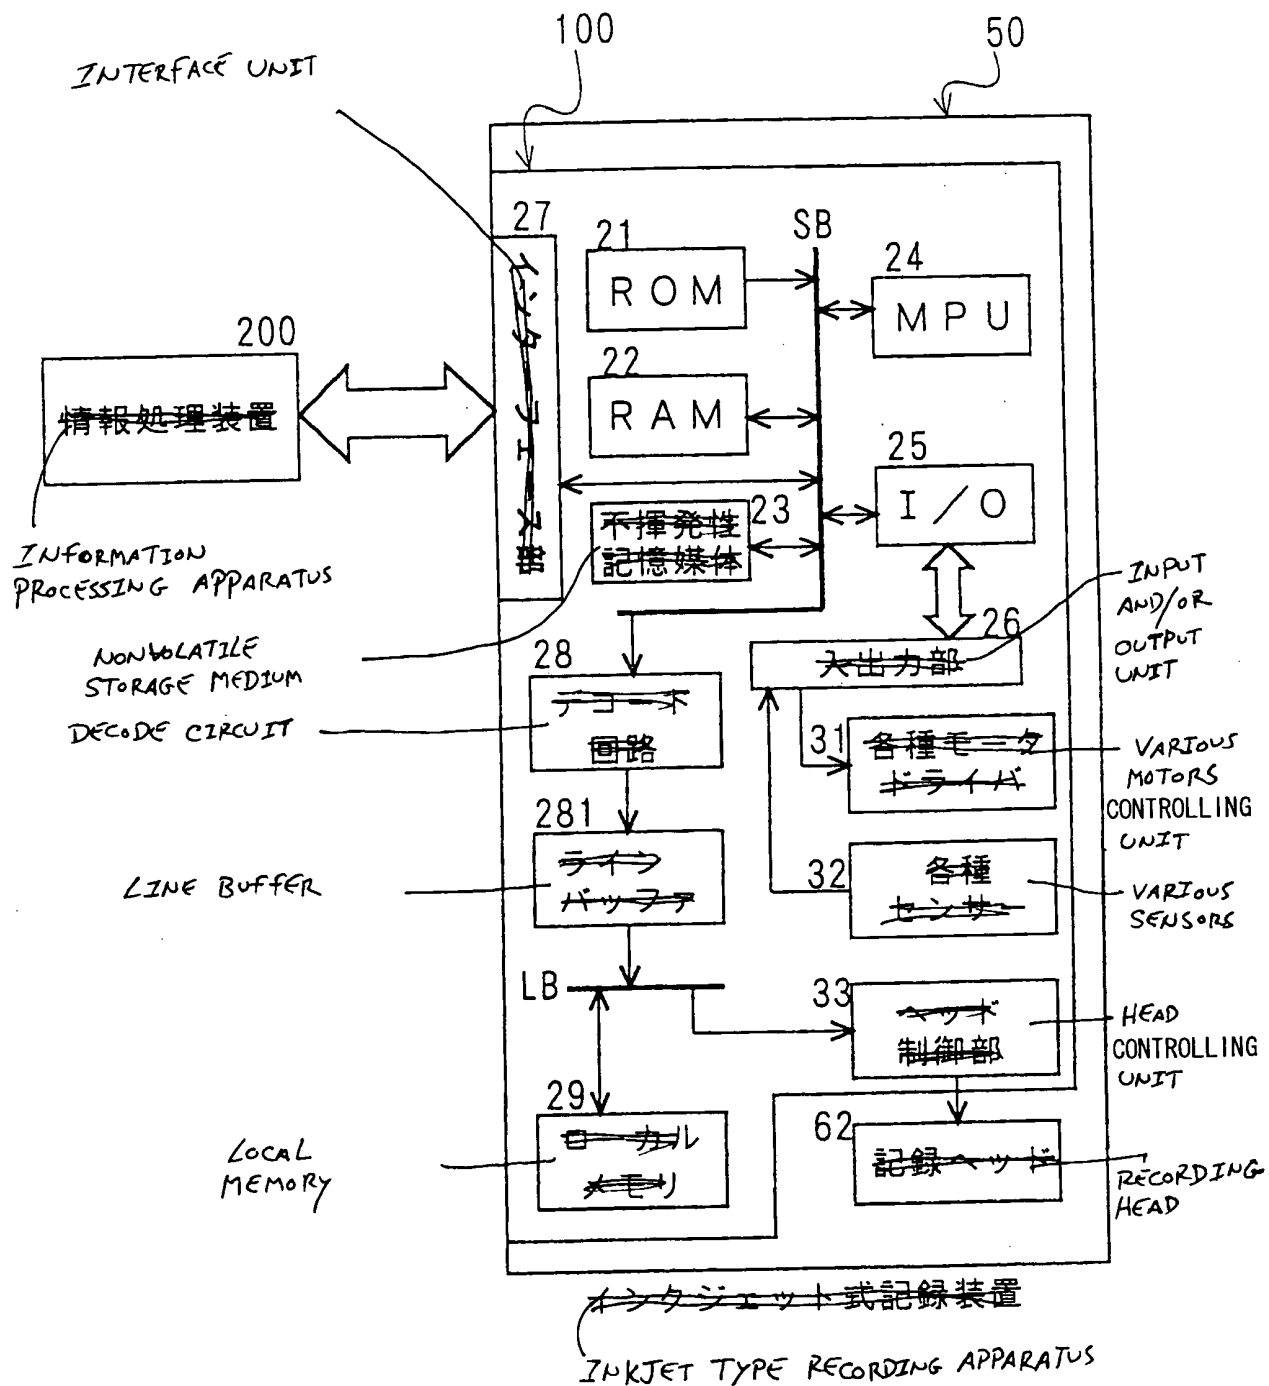 100
50
INTERFACE UNIT
27
インタフェース部
21
ROM
SB
24
MPU
200
情報処理装置
22
RAM
25
I/O
INFORMATION
PROCESSING APPARATUS
不揮発性
記憶媒体
23
INPUT
AND/OR
OUTPUT
UNIT
NONVOLATILE
STORAGE MEDIUM
26
入出力部
28
デコード
回路
DECODE CIRCUIT
31
各種モータ
ドライバ
VARIOUS
MOTORS
CONTROLLING
UNIT
281
ライン
バッファ
LINE BUFFER
32
各種
センサー
VARIOUS
SENSORS
LB
33
ヘッド
制御部
HEAD
CONTROLLING
UNIT
29
ローカル
メモリ
LOCAL
MEMORY
62
記録ヘッド
RECORDING
HEAD
インクジェット式記録装置
INKJET TYPE RECORDING APPARATUS